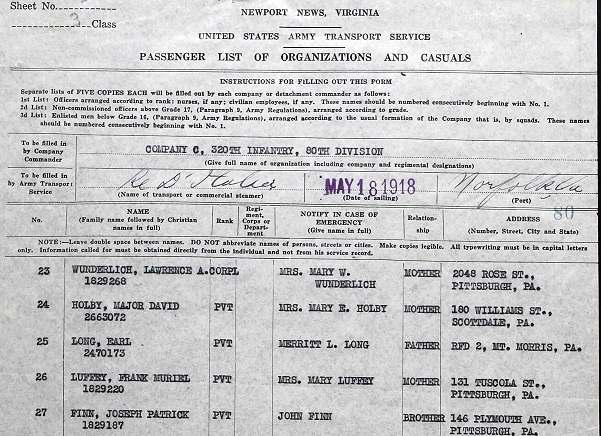 Sheet No.
NEWPORT NEWS, VIRGINIA
3 Class
UNITED STATES ARMY TRANSPORT SERVICE
PASSENGER LIST OF ORGANIZATIONS AND CASUALS
INSTRUCTIONS FOR FILLING OUT THIS FORM
Separate lists of FIVE COPIES EACH will be filled out by each company or detachment commander as follows:
1st List: Officers arranged according to rank; nurses, if any; civilian employees, if any. These names should be numbered consecutively beginning with No. 1.
2d List: Non-commissioned officers above Grade 17, (Paragraph 9, Army Regulations), arranged according to grade.
3d List: Enlisted men below Grade 16, (Paragraph 9, Army Regulations), arranged according to the usual formation of the Company that is, by squads. These names
should be numbered consecutively beginning with No. 1.
To be filled in by Company Commander
COMPANY C, 320TH INFANTRY, 80TH DIVISION
(Give full name of organization including company and regimental designations)
To be filled in by Army Transport Service
Re D'Italia MAY 18 1918 Norfolk Va
(Name of transport or commercial steamer) (Date of sailing) (Port)
80
No. NAME (Family name followed by Christian names in full) Rank Regiment, Corps or Department NOTIFY IN CASE OF EMERGENCY (Give name in full) Relationship ADDRESS (Number, Street, City and State)
NOTE:—Leave double space between names. DO NOT abbreviate names of persons, streets or cities. Make copies legible. All typewriting must be in capital letters
only. Information called for must be obtained directly from the individual and not from his service record.
23 WUNDERLICH, LAWRENCE A. CORPL MRS. MARY W. MOTHER 2048 ROSE ST.,
1829268 WUNDERLICH PITTSBURGH, PA.
24 HOLBY, MAJOR DAVID PVT MRS. MARY E. HOLBY MOTHER 180 WILLIAMS ST.,
2663072 SCOTTDALE, PA.
25 LONG, EARL PVT MERRITT L. LONG FATHER RFD 2, MT. MORRIS, PA.
2470173
26 LUFFEY, FRANK MURIEL PVT MRS. MARY LUFFEY MOTHER 131 TUSCOLA ST.,
1829220 PITTSBURGH, PA.
27 FINN, JOSEPH PATRICK PVT JOHN FINN BROTHER 146 PLYMOUTH AVE.,
1829187 PITTSBURGH, PA.